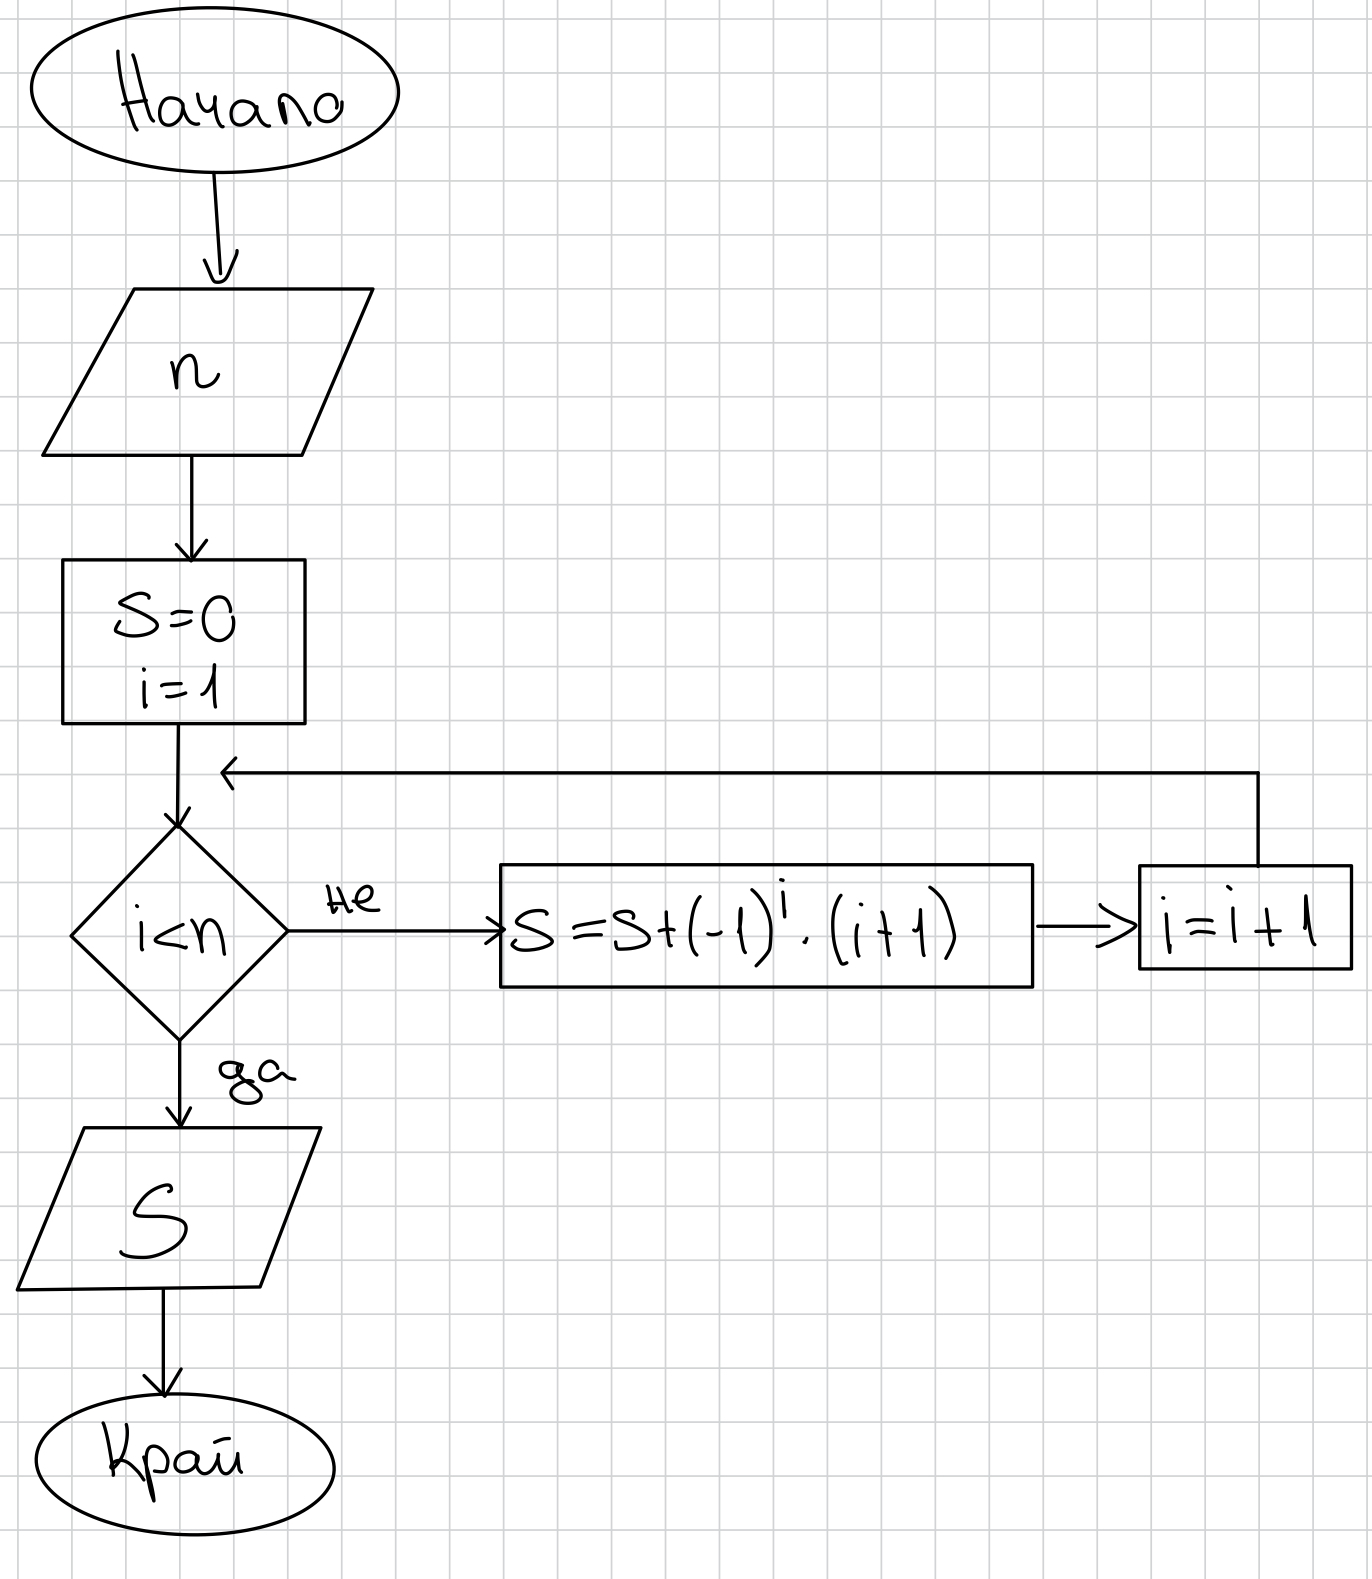 Начало
n
S=0
i=1
i<n
не
S=S+(-1)^i.(i+1)
i=i+1
да
S
Край